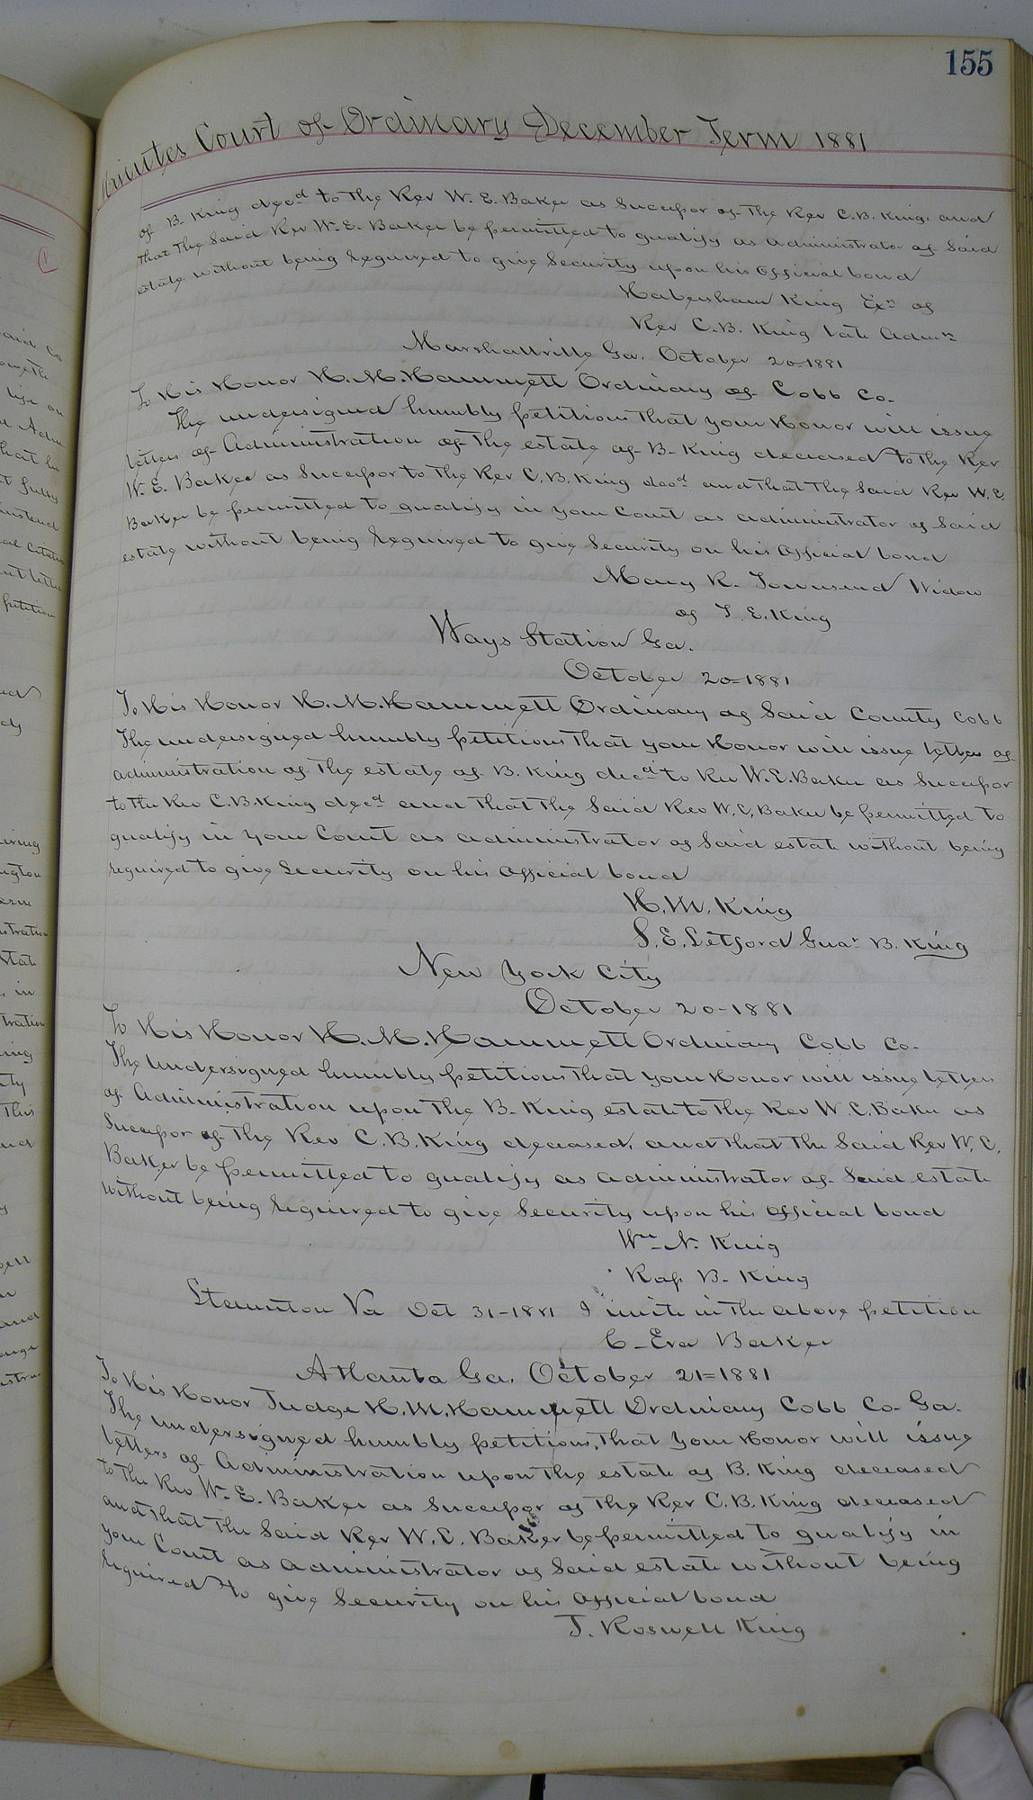 155
Minutes Court of Ordinary December Term 1881
of B. King decd to the Rev W. E. Baker as Successor of the Rev C.B. King, and
that the Said Rev W. E. Baker be permitted to qualify as administrator of Said
estate without being required to give Security upon his Official bond
Habersham King Exr of
Rev C.B. King late Admr
Marshallville Ga. October 20-1881
To His Honor H. M. Hammett Ordinary of Cobb Co-
The undersigned humbly petitions that your Honor will issue
letters of Administration of the estate of B- King deceased to the Rev
W. E. Baker as Successor to the Rev C.B. King decd and that the Said Rev W. E.
Baker be permitted to qualify in your Court as administrator of Said
estate without being required to give Security on his Official bond
Mary R. Townsend Widow
of T. E. King
Ways Station Ga.
October 20=1881
To His Honor H. M. Hammett Ordinary of Said County Cobb
The undersigned humbly petitions that your Honor will issue letters of
administration of the estate of B. King decd to Rev W. E. Baker as Successor
to the Rev C.B. King decd and that the Said Rev W. E. Baker be permitted to
qualify in your Court as administrator of Said estate without being
required to give Security on his Official bond
H. M. King
S. E. Letford Guar B. King
New York City
October 20-1881
To His Honor H. M. Hammett Ordinary Cobb Co-
The undersigned humbly petitions that your Honor will issue letters
of Administration upon the B- King estate to the Rev W. E. Baker as
Successor of the Rev C.B. King deceased, and that the Said Rev W. E.
Baker be permitted to qualify as administrator of Said estate
without being required to give Security upon his official bond
Wm N. King
Ralf B- King
Staunton Va Oct 31-1881 I unite in the above petition
C- Eva Baker
Atlanta Ga. October 21=1881
To His Honor Judge H. M. Hammett Ordinary Cobb Co- Ga.
The undersigned humbly petitions, that your Honor will issue
letters of Administration upon the estate of B. King deceased
to the Rev W. E. Baker as Successor of the Rev C.B. King deceased
and that the Said Rev W. E. Baker be permitted to qualify in
your Court as administrator of Said estate without being
required to give Security on his Official bond
J. Roswell King